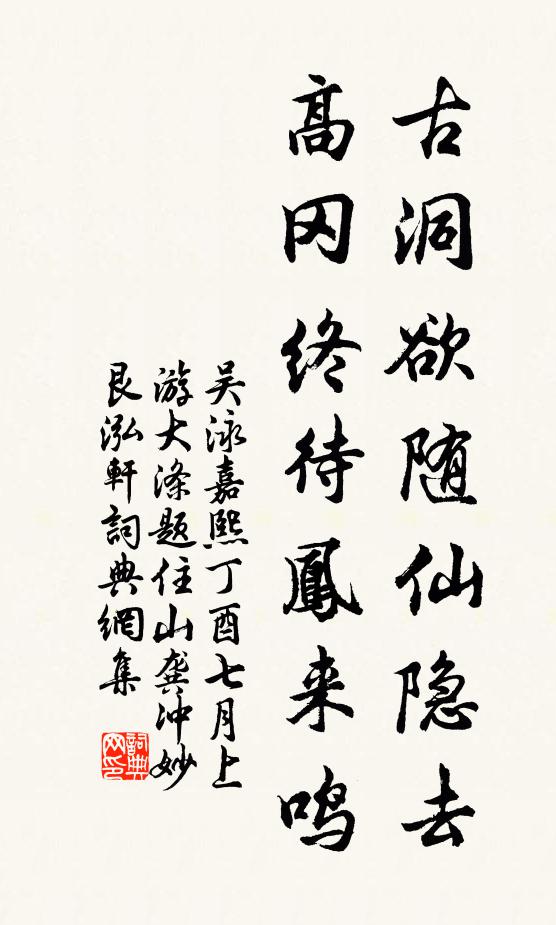 古洞欲随仙隐去
高冈终待鳳来鸣
吴泳嘉熙丁酉七月上
游大涤题住山龚冲妙
艮泓軒詞典網集
詞典
网印